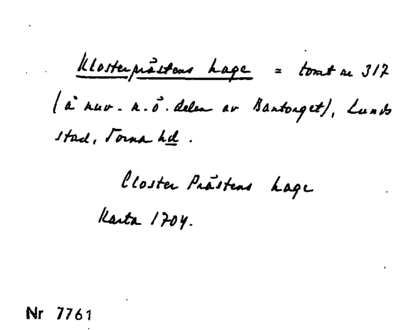 Klosterprästens hage = tomt nr 317
(å nuv. n.ö. delen av Bantorget), Lunds
stad, Torna hd.
Closter Prästens hage
Karta 1704.
Nr 7761